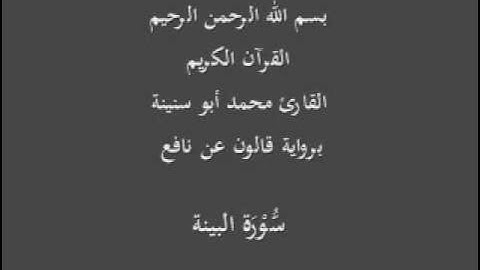 بسم الله الرحمن الرحيم
القرآن الكريم
القارئ محمد أبو سنينة
برواية قالون عن نافع
سُّوْرَة البينة